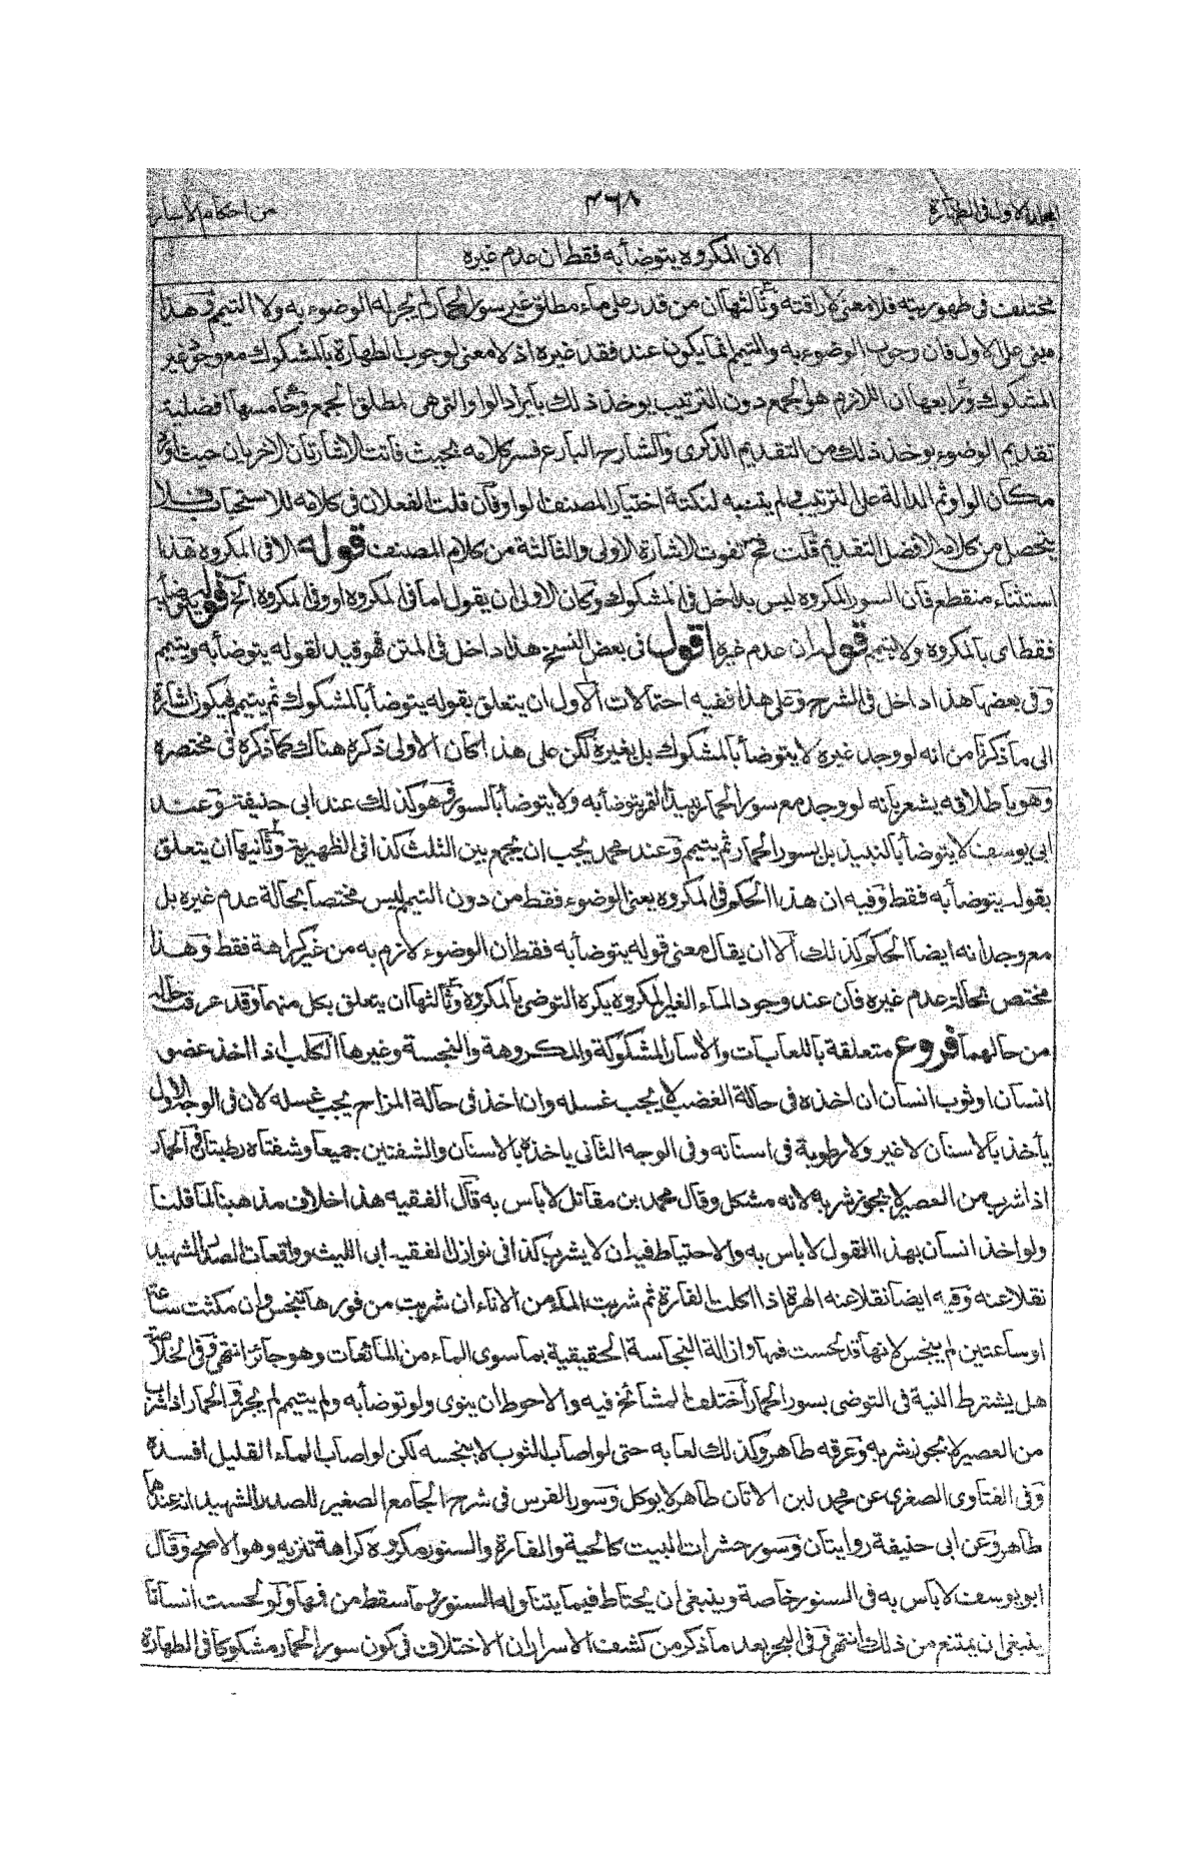 المجلد الاول فى الطهارة ٤٦٨ من احكام الأسار
الا فى المكروه يتوضأ به فقط ان عدم غيره
مختلف فى طهوريته فلا معنى لاراقته وثالثها ان من قدر على ماء مطلق غير سور الحمار لم يجز له الوضوء به ولا التيمم وهذا
مبنى على الاول فان وجوب الوضوء به والتيمم انما يكون عند فقد غيره اذ لا معنى لوجوب الطهارة بالمشكوك مع وجود غير
المشكوك ورابعها ان اللازم هو الجمع دون الترتيب يوخذ ذلك بايراد الواو التى هى لمطلق الجمع وخامسها افضلية
تقديم الوضوء يوخذ ذلك من التقديم الذكرى والشارح البارع فسر كلامه بحيث فاتت الاشارتان الاخريان حيث اورد
مكان الواو ثم الدالة على الترتيب ولم يتنبه لنكتة اختيار المصنف الواو فان قلت الفعلان فى كلامه للاستحباب فلا
يتحصل من كلامه الا فضل التقديم قلت فح تفوت الاشارة الاولى والثالثة من كلام المصنف قوله الا فى المكروه هذا
استثناء منقطع فان السور المكروه ليس بداخل فى المشكوك وكان الاولى ان يقول اما فى المكروه او وفى المكروه الخ قوله يتوضأ به
فقط اى بالمكروه ولا يتيمم قوله ان عدم غيره اقول فى بعض النسخ هذا داخل فى المتن فهو قيد لقوله يتوضأ به ويتيمم
وفى بعضها هذا داخل فى الشرح وعلى هذا ففيه احتمالات الاول ان يتعلق بقوله يتوضأ بالمشكوك ثم يتيمم فيكون اشارة
الى ما ذكرنا من انه لو وجد غيره لا يتوضأ بالمشكوك بل بغيره لكن على هذا كان الاولى ذكره هناك كما ذكره فى مختصره
وهو باطلاقه يشعر بانه لو وجد مع سور الحمار نبيذ التمر يتوضأ به ولا يتوضأ بالسور فهو كذلك عند ابى حنيفة وعند
ابى يوسف لا يتوضأ بالنبيذ بل بسور الحمار ثم يتيمم وعند محمد يجب ان يجمع بين الثلث كذا فى الظهيرية وثانيها ان يتعلق
بقوله يتوضأ به فقط وفيه ان هذا الحكم فى المكروه يعنى الوضوء فقط من دون التيمم ليس مختصا بحالة عدم غيره بل
مع وجدانه ايضا الحكم كذلك الا ان يقال معنى قوله يتوضأ به فقط ان الوضوء لازم به من غير كراهة فقط وهذا
مختص بحالة عدم غيره فان عند وجود الماء الغير المكروه يكره التوضى بالمكروه وثالثها ان يتعلق بكل منهما وقد عرفت حاله
من حالهما فروع متعلقة باللعابات والاسار المشكوكة والمكروهة والنجسة وغيرها الكلب اذا اخذ عضو
انسان او ثوب انسان ان اخذه فى حالة الغضب لا يجب غسله وان اخذ فى حالة المزاح يجب غسله لان فى الوجه الاول
يأخذ بالاسنان لا غير ولا رطوبة فى اسنانه وفى الوجه الثانى ياخذه بالاسنان والشفتين جميعا وشفتاه رطبتان الحمار
اذا شرب من العصير لا يجوز شربه لانه مشكل وقال محمد بن مقاتل لا باس به قال الفقيه هذا خلاف مذهبنا لما قلنا
ولو اخذ انسان بهذا القول لا باس به والاحتياط فيه ان لا يشرب كذا فى نوازل الفقيه ابى الليث وواقعات الصدر الشهيد
نقلا عنه وفيه ايضا نقلا عنه الهرة اذا اكلت الفارة ثم شربت الماء من الاناء ان شربت من فورها تنجس وان مكثت ساعة
او ساعتين لم ينجس لانها قد لحست فمها وازالة النجاسة الحقيقية بما سوى الماء من المائعات وهو جائز انتهى وفى الخلاصة
هل يشترط النية فى التوضى بسور الحمار اختلف المشائخ فيه والاحوط ان ينوى ولو توضأ به ولم يتيمم لم يجز وفى الحمار اذا شرب
من العصير لا يجوز شربه وعرقه طاهر وكذلك لعابه حتى لو اصاب الثوب لا ينجسه لكن لو اصاب الماء القليل افسده
وفى الفتاوى الصغرى عن محمد لبن الاتان طاهر لا يوكل وسور الفرس فى شرح الجامع الصغير للصدر الشهيد انه عندهما
طاهر وعن ابى حنيفة روايتان وسور حشرات البيت كالحية والفارة والسنور مكروه كراهة تنزيه وهو الاصح وقال
ابو يوسف لا باس به فى السنور خاصة وينبغى ان يحتاط فيما يتناوله السنور مما سقط من فمها ولو لحست انسانا
ينبغى ان يمتنع من ذلك انتهى وفى البحر بعد ما ذكر من كشف الاسرار ان الاختلاف فى كون سور الحمار مشكوكا فى الطهارة